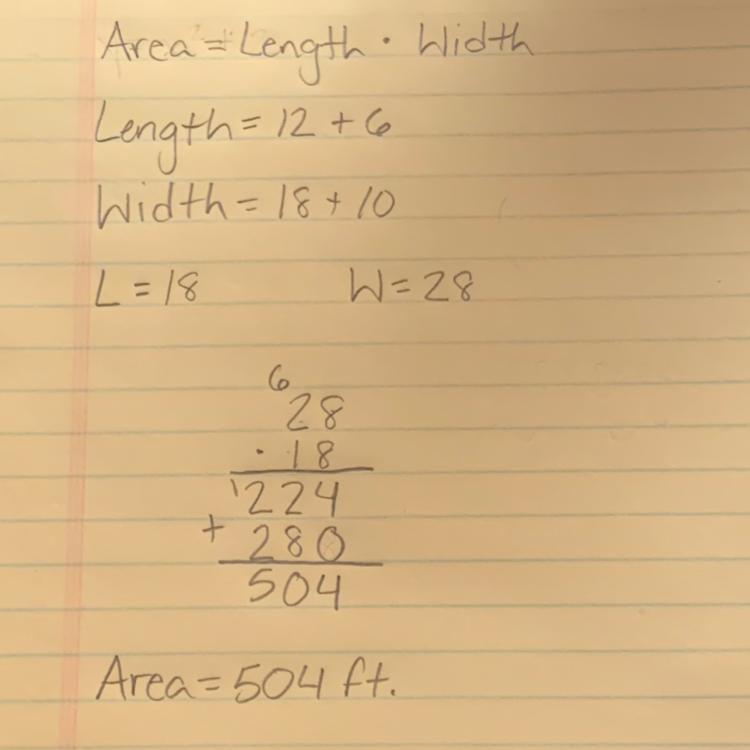 Area = Length · Width
Length = 12 + 6
Width = 18 + 10
L = 18 W = 28
6
28
· 18
1224
+ 280
504
Area = 504 ft.